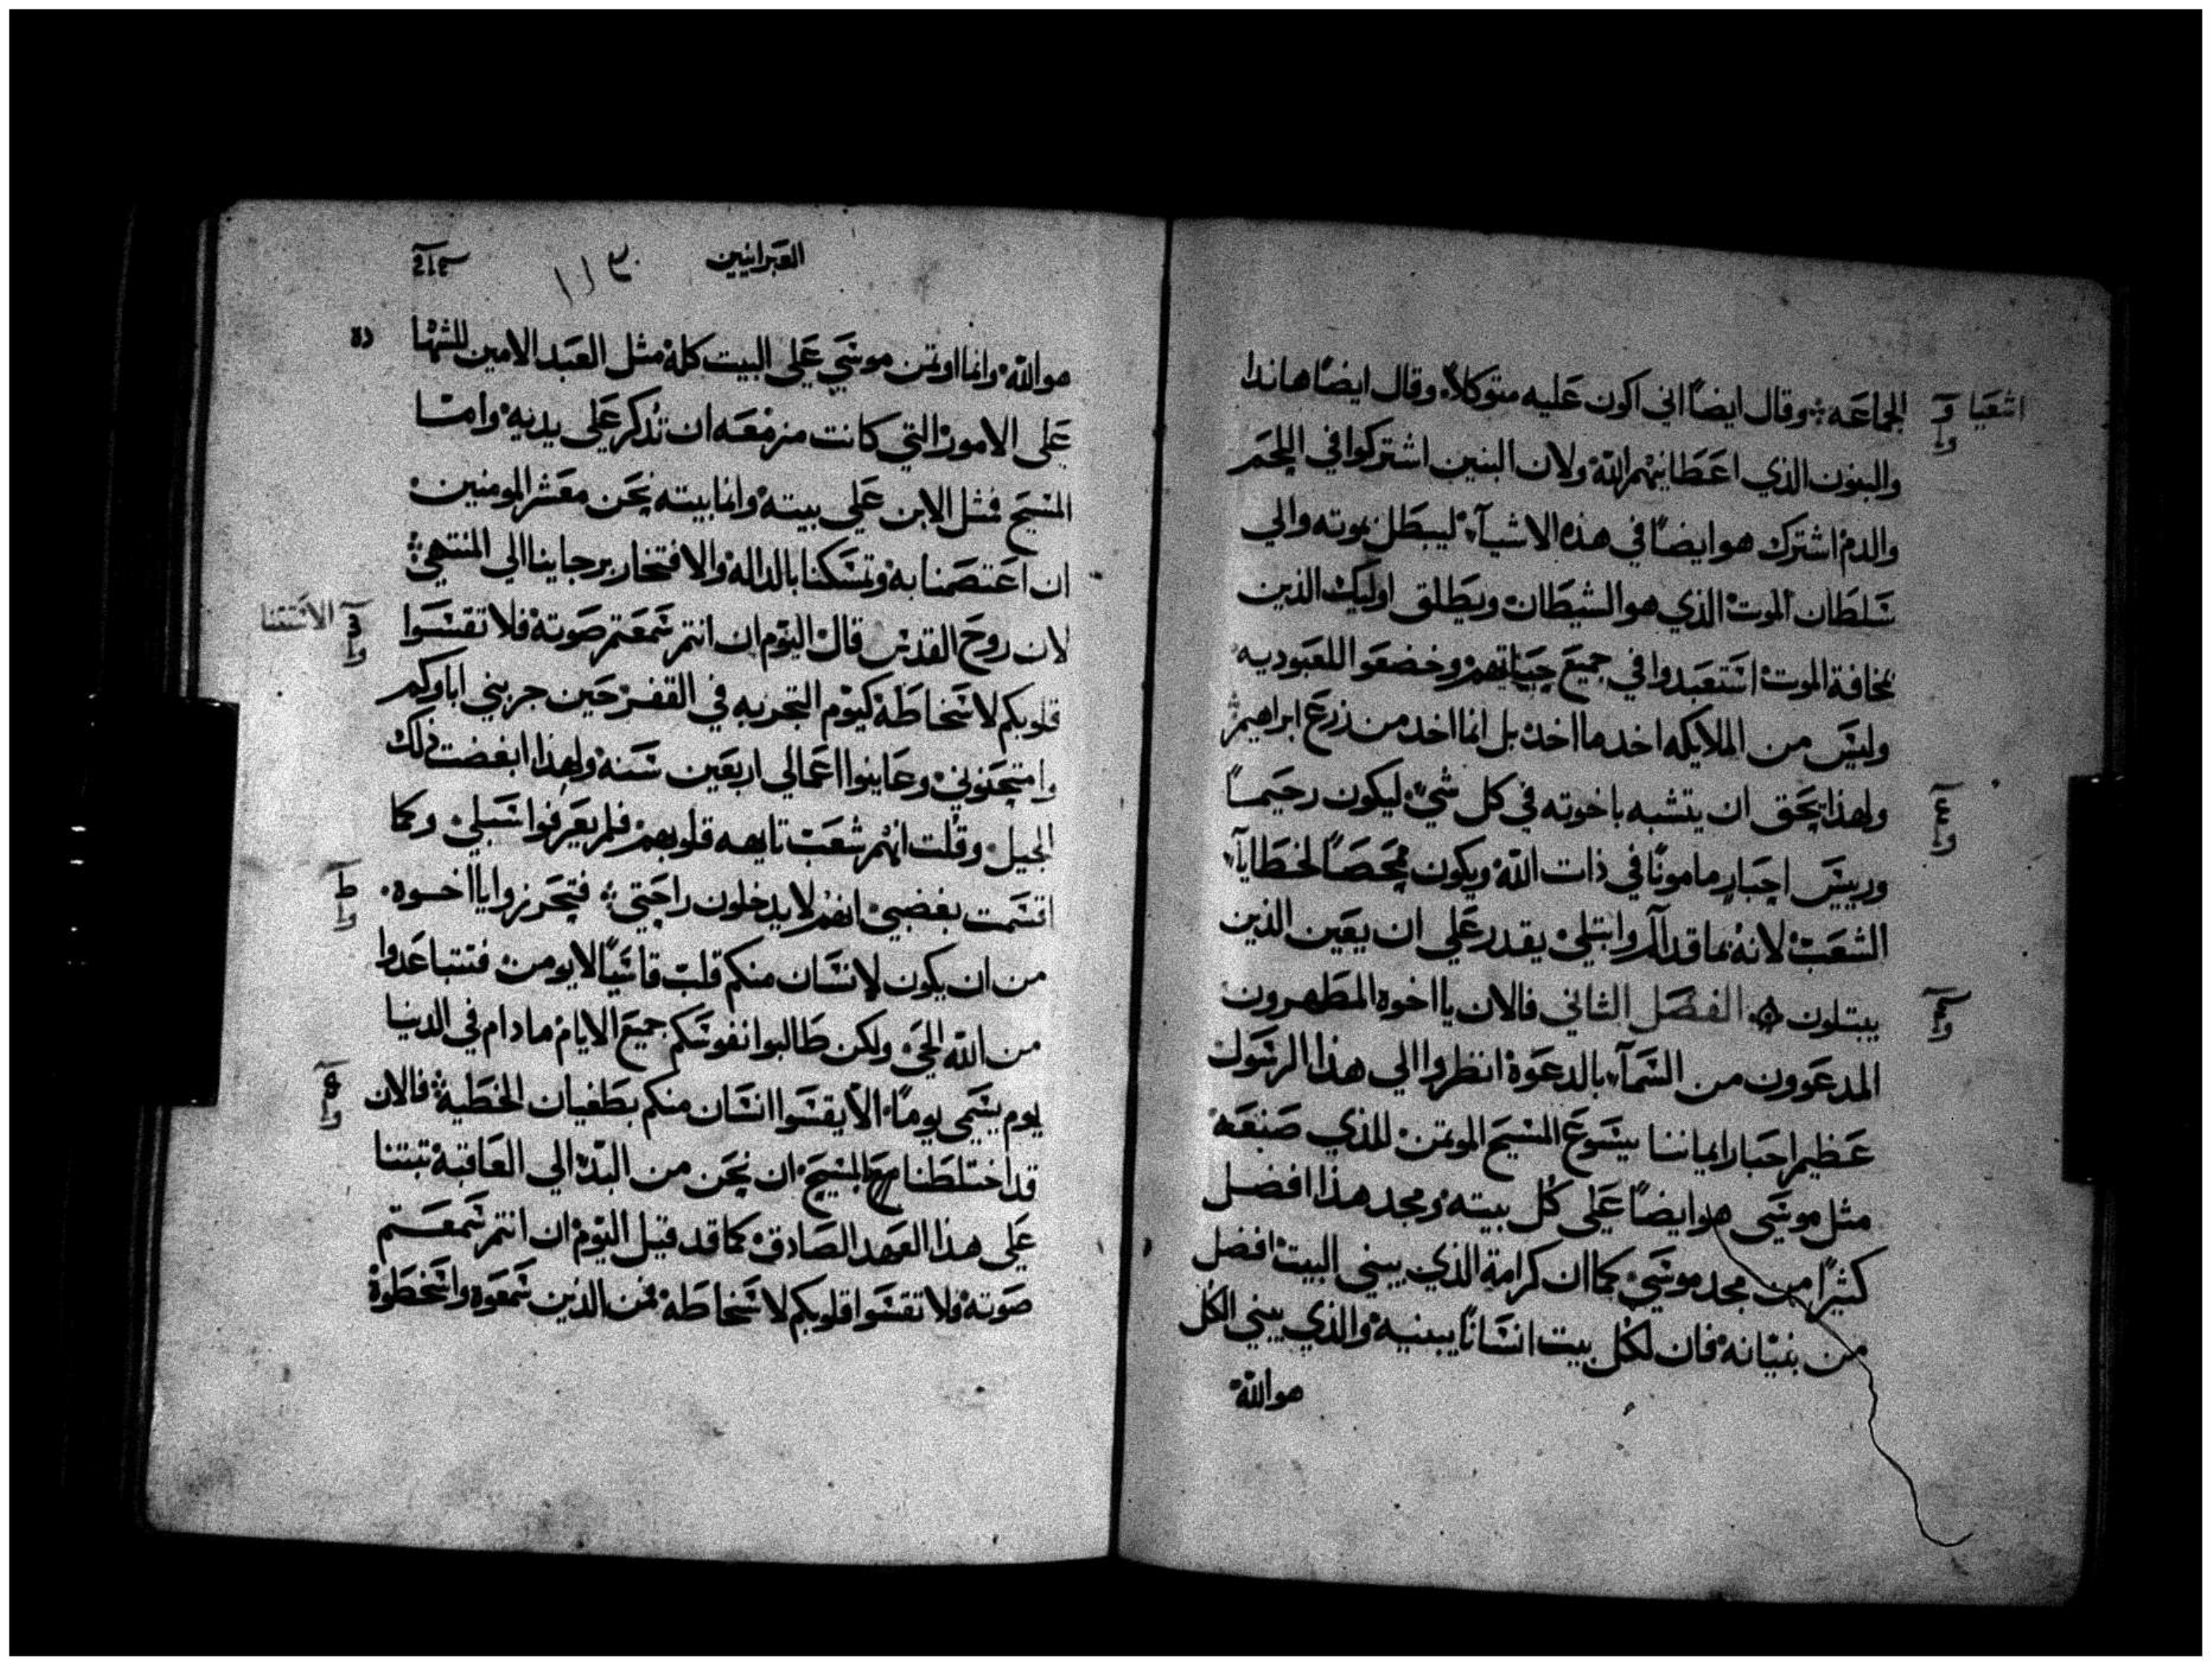 الجماعه وقال ايضًا اني اكون عليه متوكلاً وقال ايضًا هاندا
اشعيا
والبنون الذي اعطانيهم الله ولان البنين اشتركوا في اللحم
والدم اشترك هو ايضًا في هذه الاشيآء ليبطل بموته والي
سلطان الموت الذي هو الشيطان ويطلق اوليك الذين
بمخافة الموت استعبدوا في جميع حياتهم وخضعوا للعبوديه
وليس من الملايكه اخد ما اخد بل انما اخد من زرع ابراهيم
ولهذا يحق ان يتشبه باخوته في كل شي ليكون رحيمًا
وربيس احبار مامونًا في ذات الله ويكون ممحصًا لخطايآ
الشعب لانه بما قد آلم وابتلي يقدر علي ان يعين الذين
يبتلون الفصل الثاني فالان يا اخوه المطهرون
المدعوون من السمآء بالدعوة انظروا الي هذا الرسول
عظيم احبار ايماننا يسوع المسيح الموتمن للذي صنعه
مثل موسي هو ايضًا علي كل بيته ومجد هذا افضل
كثيرًا من مجد موسي كما ان كرامة الذي يبني البيت افضل
من بنيانه فان لكل بيت انسانًا يبنيه والذي يبني الكل
هو الله
العبرانيين
١١٣
هو الله وانما اوتمن موسي علي البيت كله مثل العبد الامين للشها
ده
علي الامور التي كانت مزمعه ان تدكر علي يديه وامـا
المسيح فمثل الابن علي بيته وانما بيته نحن معشر المومنين
ان اعتصمنا به وتمسكنا بالداله والافتخار برجاينا الي المنتهي
لان روح القدس قال اليوم ان انتم سمعتم صوته فلا تقسوا
الاستثنا
قلوبكم لاسخاطه كيوم التجربه في القفر حين جربني اباوكم
وامتحنوني وعاينوا اعمالي اربعين سنه ولهذا ابغضت ذلك
الجيل وقلت انهم شعب تايهه قلوبهم فلم يعرفوا سبلي وكما
اقسمت بغضبي انهم لا يدخلون راحتي فتحرزوا يا اخوه
من ان يكون لانسان منكم قلب قاسيًا لا يومن فتتباعدوا
من الله الحي ولكن طالبوا نفوسكم جميع الايام ما دام في الدنيا
يوم يسمي يومًا الا يقسوا انسان منكم بطغيان الخطيه فالان
قد اختلطنا بالمسيح ان نحن من البد الي العاقبة ثبتنا
علي هذا العهد الصادق كما قد قيل اليوم ان انتم سمعتم
صوته فلا تقسوا قلوبكم لاسخاطه فمن الذين سمعوه واسخطوه